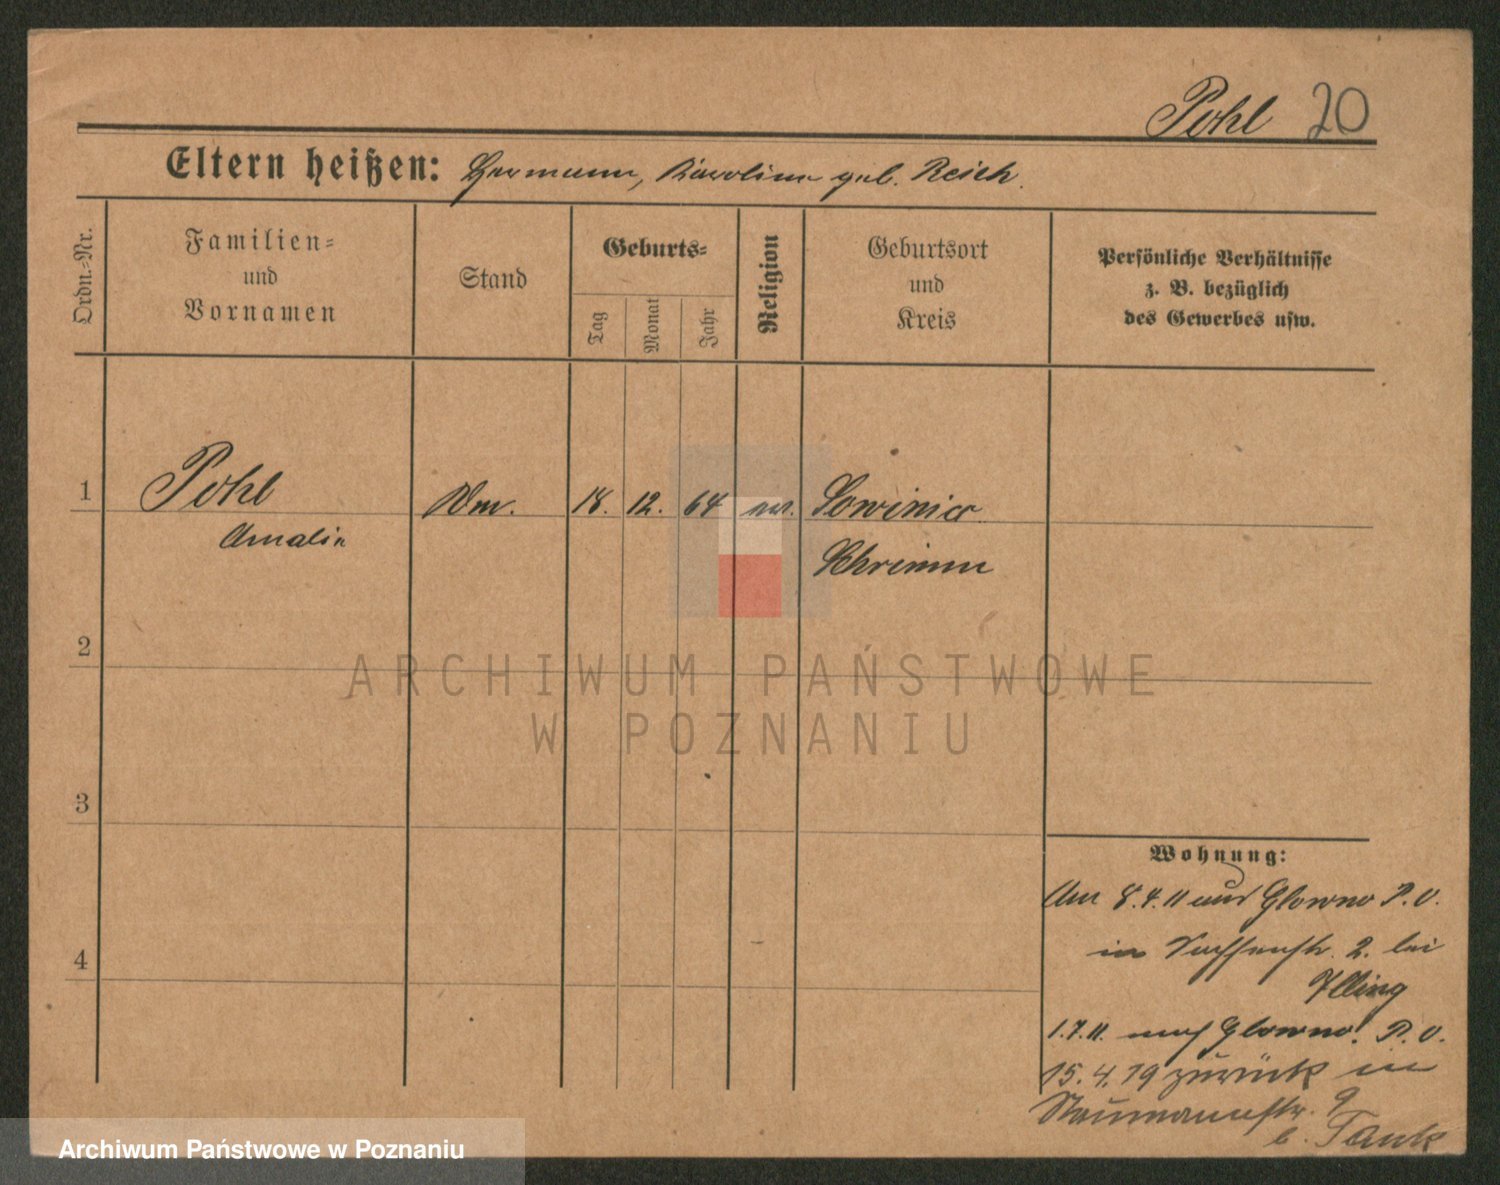 Pohl 20
Eltern heißen: Hermann, Karoline geb. Reich.
Ordn.-Nr.
Familien-
und
Vornamen
Stand
Geburts-
Tag
Monat
Jahr
Religion
Geburtsort
und
Kreis
Persönliche Verhältnisse
z. B. bezüglich
des Gewerbes usw.
1 Pohl 18. 12. 64 ev. Lowinice
Amalie Schrimm
2
3
4
Wohnung:
Am 8.4.11 aus Glowno P. O.
in 2. bei
Illing
1.7.11. nach Glowno. P. O.
15.4.19 zurück in
Naumannstr. 9
b. Tauk
ARCHIWUM PAŃSTWOWE
W POZNANIU
Archiwum Państwowe w Poznaniu